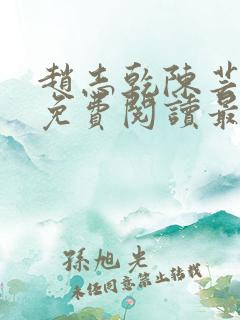 趙志乾陳芸
免費閱讀最
孫旭光
未經同意禁止轉載